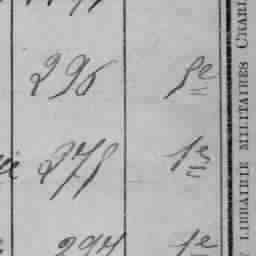 296 5e
275 1e
294 1e
LIBRAIRIE MILITAIRES CHARL